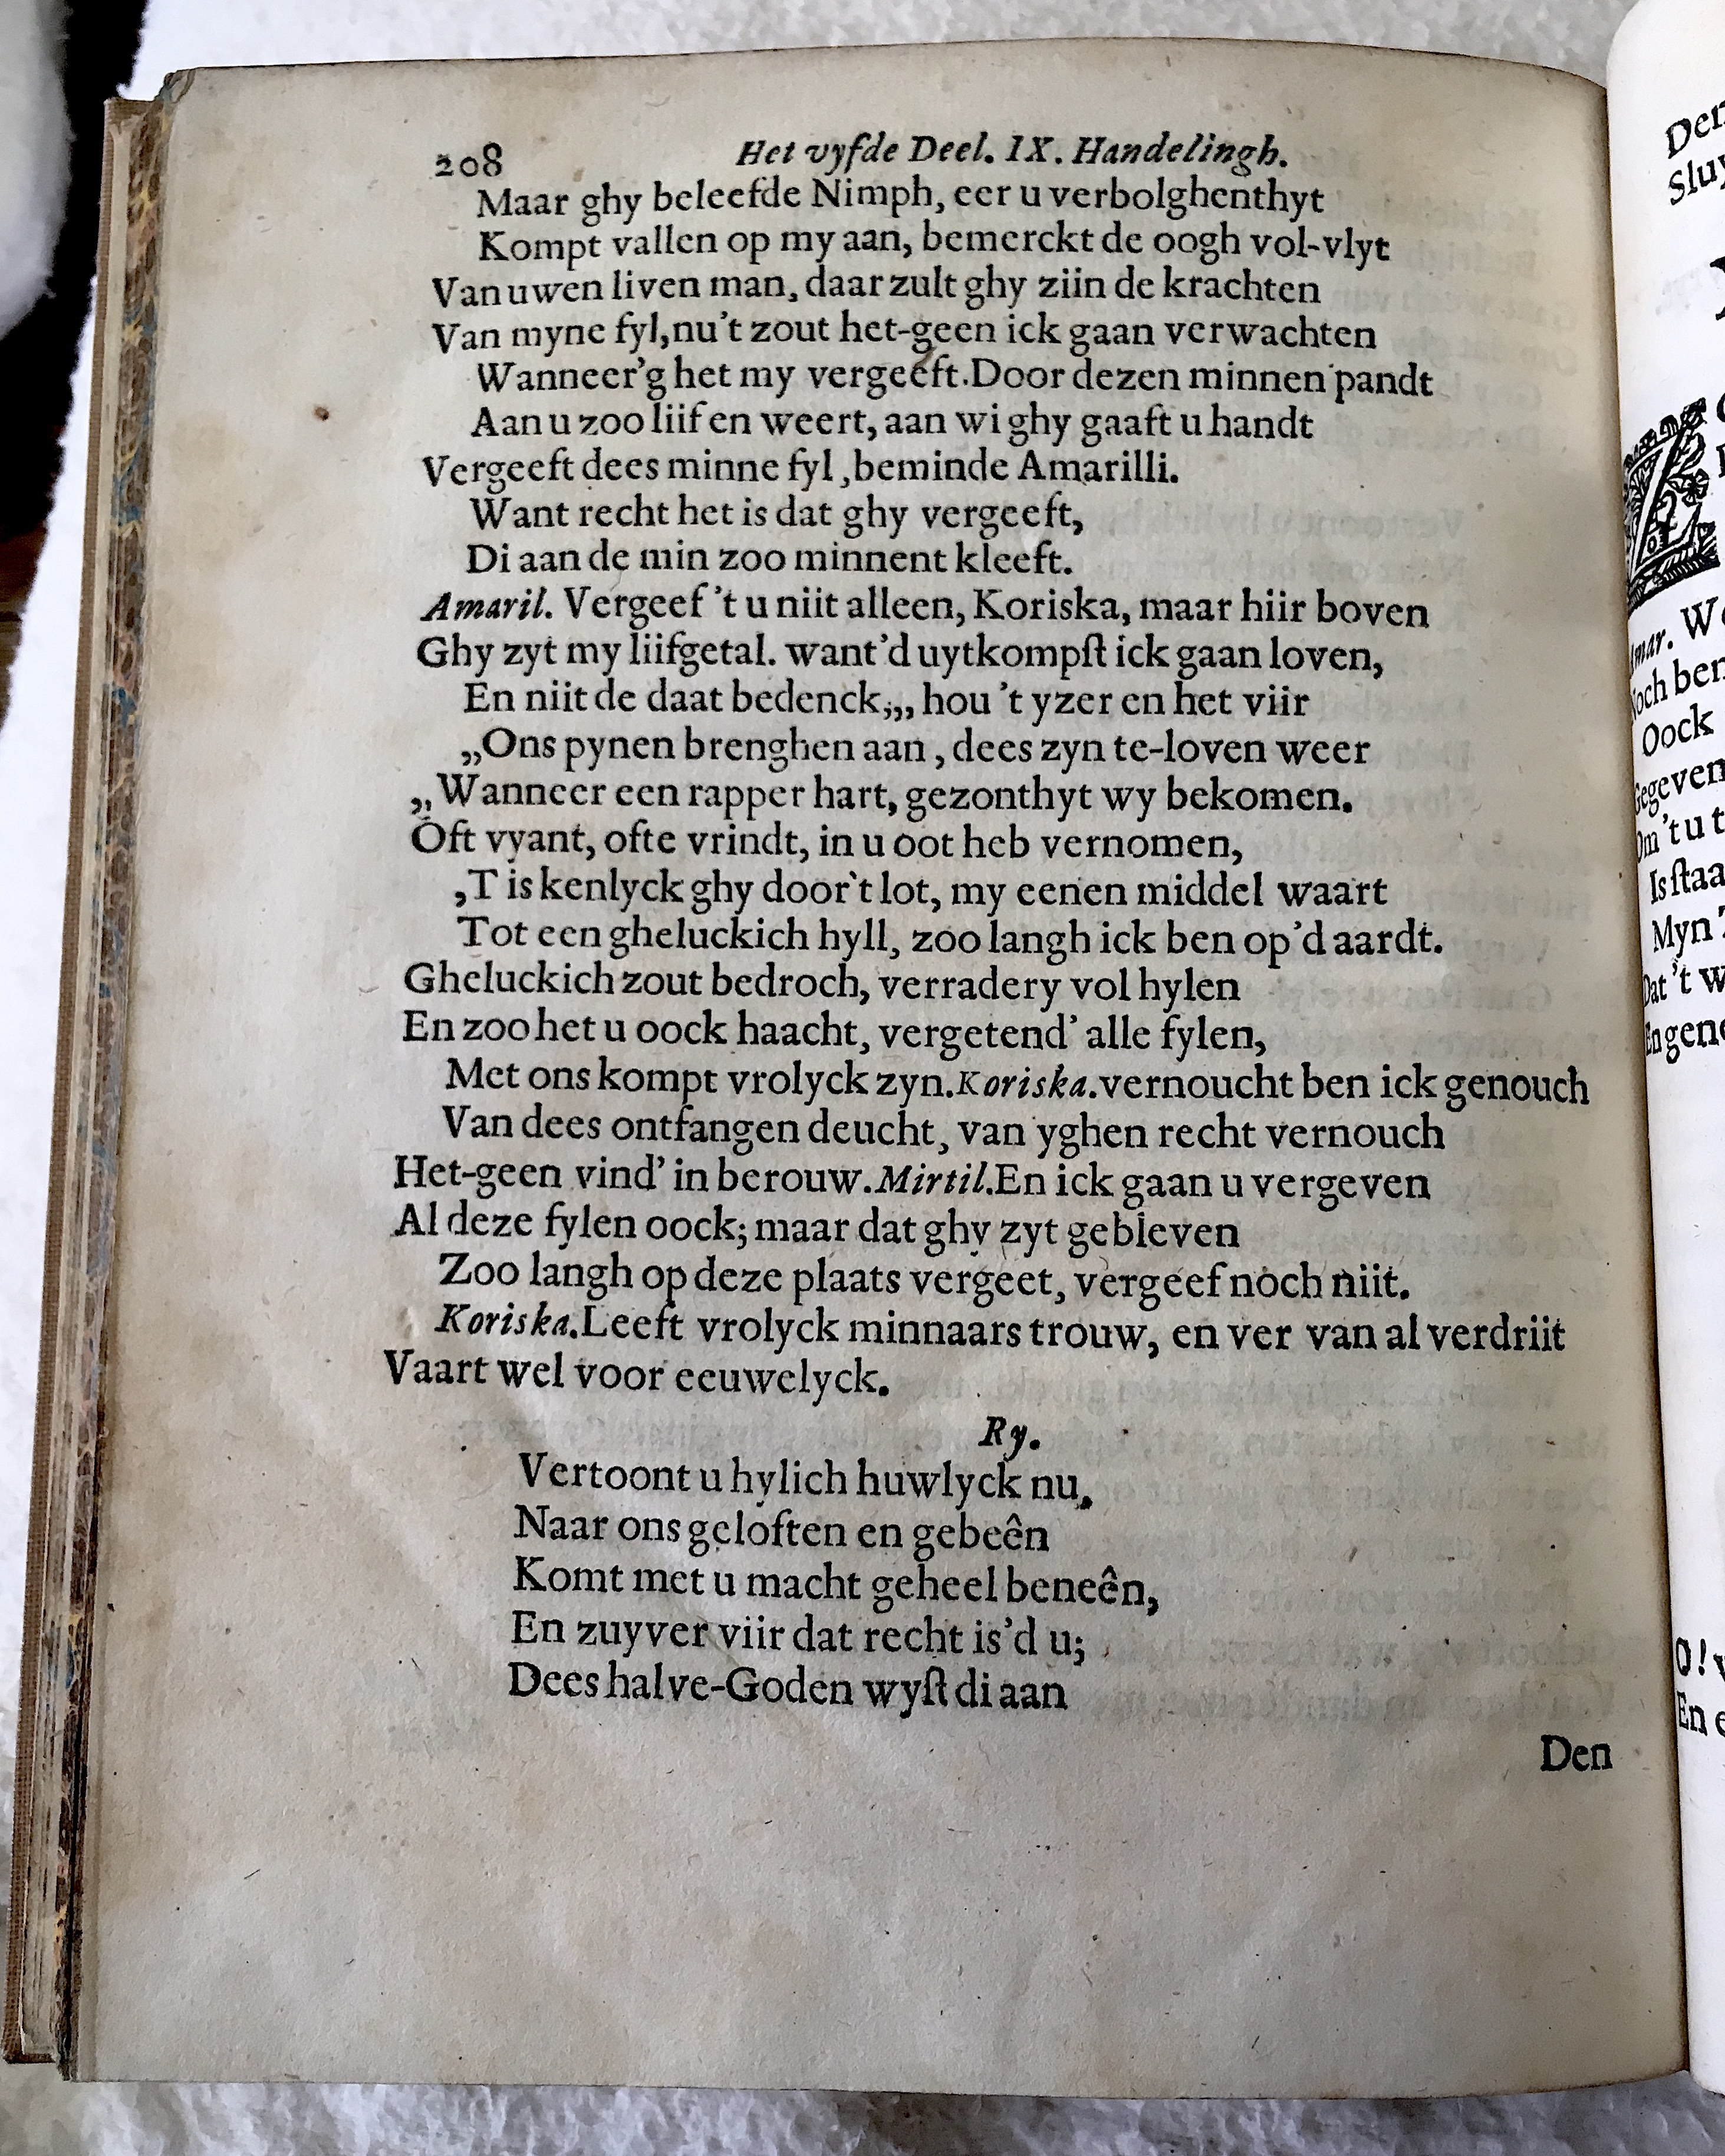 208 Het vyfde Deel. IX. Handelingh.
Maar ghy beleefde Nimph, eer u verbolghenthyt
Kompt vallen op my aan, bemerckt de oogh vol-vlyt
Van uwen liven man, daar zult ghy ziin de krachten
Van myne fyl, nu't zout het-geen ick gaan verwachten
Wanneer'g het my vergeeft. Door dezen minnen pandt
Aan u zoo liif en weert, aan wi ghy gaaft u handt
Vergeeft dees minne fyl, beminde Amarilli.
Want recht het is dat ghy vergeeft,
Di aan de min zoo minnent kleeft.
Amaril. Vergeef 't u niit alleen, Koriska, maar hiir boven
Ghy zyt my liifgetal. want'd uytkompſt ick gaan loven,
En niit de daat bedenck;,, hou 't yzer en het viir
„Ons pynen brenghen aan, dees zyn te-loven weer
„Wanneer een rapper hart, gezonthyt wy bekomen.
Oft vyant, ofte vrindt, in u oot heb vernomen,
,T is kenlyck ghy door't lot, my eenen middel waart
Tot een gheluckich hyll, zoo langh ick ben op'd aardt.
Gheluckich zout bedroch, verradery vol hylen
En zoo het u oock haacht, vergetend' alle fylen,
Met ons kompt vrolyck zyn. Koriska. vernoucht ben ick genouch
Van dees ontfangen deucht, van yghen recht vernouch
Het-geen vind' in berouw. Mirtil. En ick gaan u vergeven
Al deze fylen oock; maar dat ghy zyt gebleven
Zoo langh op deze plaats vergeet, vergeef noch niit.
Koriska. Leeft vrolyck minnaars trouw, en ver van al verdriit
Vaart wel voor eeuwelyck.
Ry.
Vertoont u hylich huwlyck nu,
Naar ons geloften en gebeên
Komt met u macht geheel beneên,
En zuyver viir dat recht is'd u;
Dees halve-Goden wyſt di aan
Den